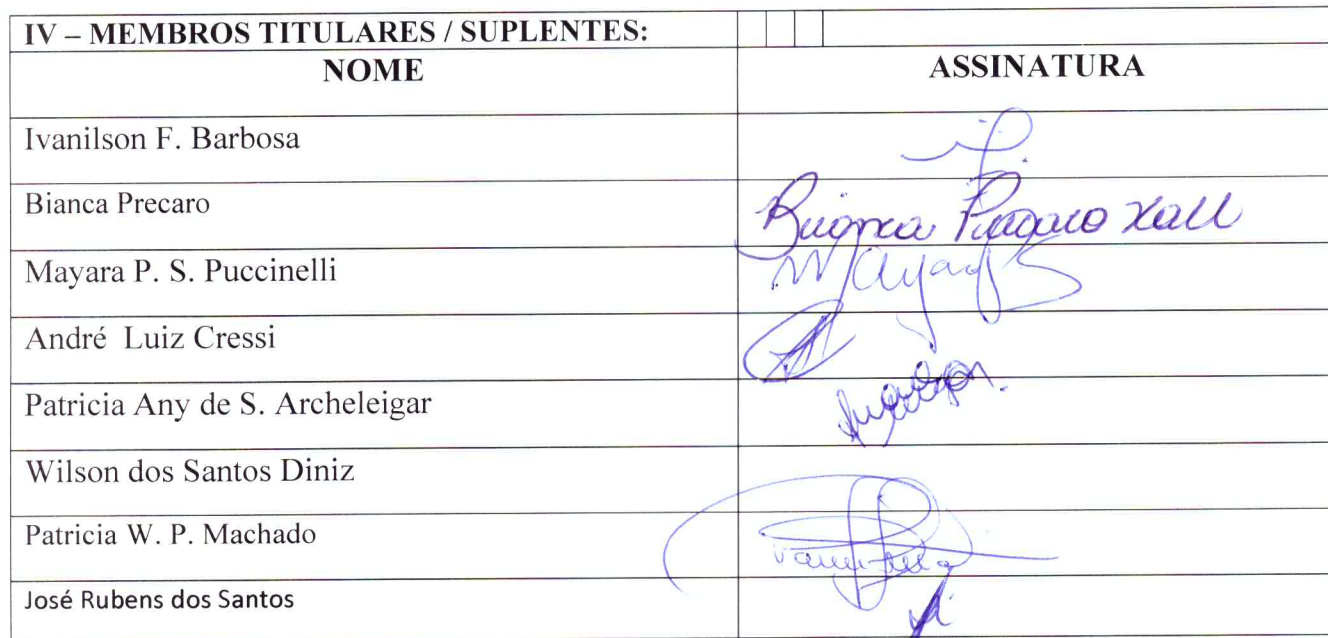 IV – MEMBROS TITULARES / SUPLENTES:
NOME ASSINATURA
Ivanilson F. Barbosa
Bianca Precaro Bianca
Mayara P. S. Puccinelli
André Luiz Cressi
Patricia Any de S. Archeleigar
Wilson dos Santos Diniz
Patricia W. P. Machado
José Rubens dos Santos